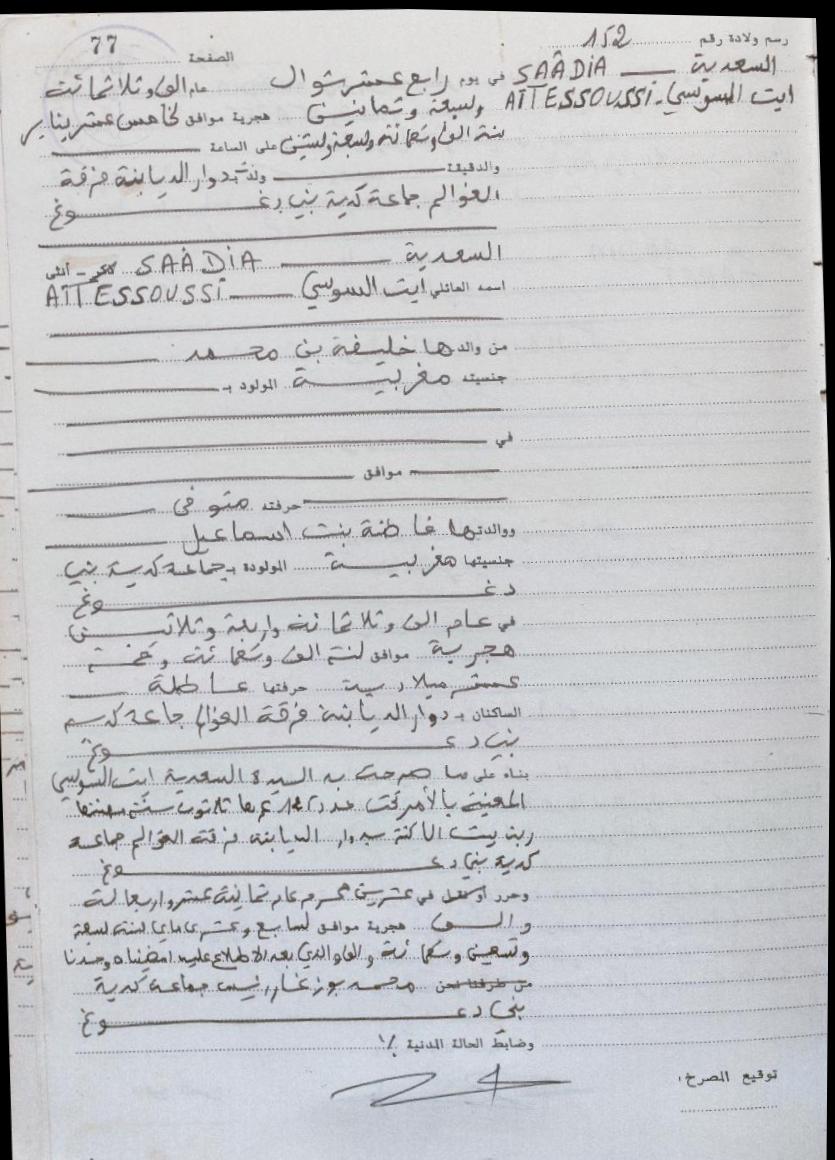 77
الصفحة
رسم ولادة رقم 152
السعدية SAÂDIA في يوم رابع عشر شوال عام الف وثلاثمائة
ايت السوسي AÏT ESSOUSSI وسبعة وثمانين هجرية موافق لخامس عشر يناير
سنة الف وتسعمائة وسبعة وستين على الساعة
والدقيقة ولدت بدوار الديابنة فرقة
العوالم جماعة كدية بني دغوغ
السعدية SAÂDIA ذكر - أنثى
اسمه العائلي ايت السوسي AÏT ESSOUSSI
من والدها خليفة بن محمد
جنسيته مغربية المولود بـ
في
موافق
حرفته متوفى
ووالدتها فاطنة بنت اسماعيل
جنسيتها مغربية المولودة بـ جماعة كدية بني
دغوغ
في عام الف وثلاثمائة واربعة وثلاثين
هجرية موافق لسنة الف وتسعمائة وخمسة
عشر ميلادية حرفتها عاطلة
الساكنان بـ دوار الديابنة فرقة العوالم جماعة كدية
بني دغوغ
بناء على ما صرحت به السيدة السعدية ايت السوسي
المعنية بالأمر تحت عدد عمرها ثلاثون سنة مهنتها
ربة بيت الساكنة بدوار الديابنة فرقة العوالم جماعة
كدية بني دغوغ
وحرر او سجل في عشرين محرم عام ثمانية عشر واربعمائة
والف هجرية موافق لسابع وعشرين ماي لسنة سبعة
وتسعين وتسعمائة والف والذي بعد الاطلاع عليه امضيناه وحدنا
من طرفنا نحن محمد بوزغار رئيس جماعة كدية
بني دغوغ
وضابط الحالة المدنية ./.
توقيع المصرح: